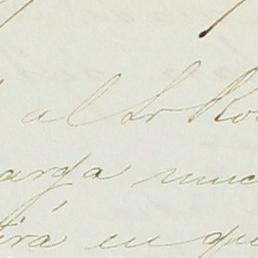 al Sr Ro
arga muc
tirá en que